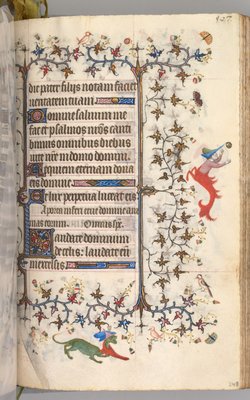 127.
die pater filijs notam faciet
ueritatem tuam
Domine saluum me
fac et psalmos nr̃os canta
bimus omnibus diebus
uite nr̃e in domo domini.
Requiem eternam dona
eis domine
Et lux perpetua luceat eis
A porta inferi erue domine ani
mas eorum. Omnis sp̃c
Laudate dominum
de celis: laudate eum
excelsis